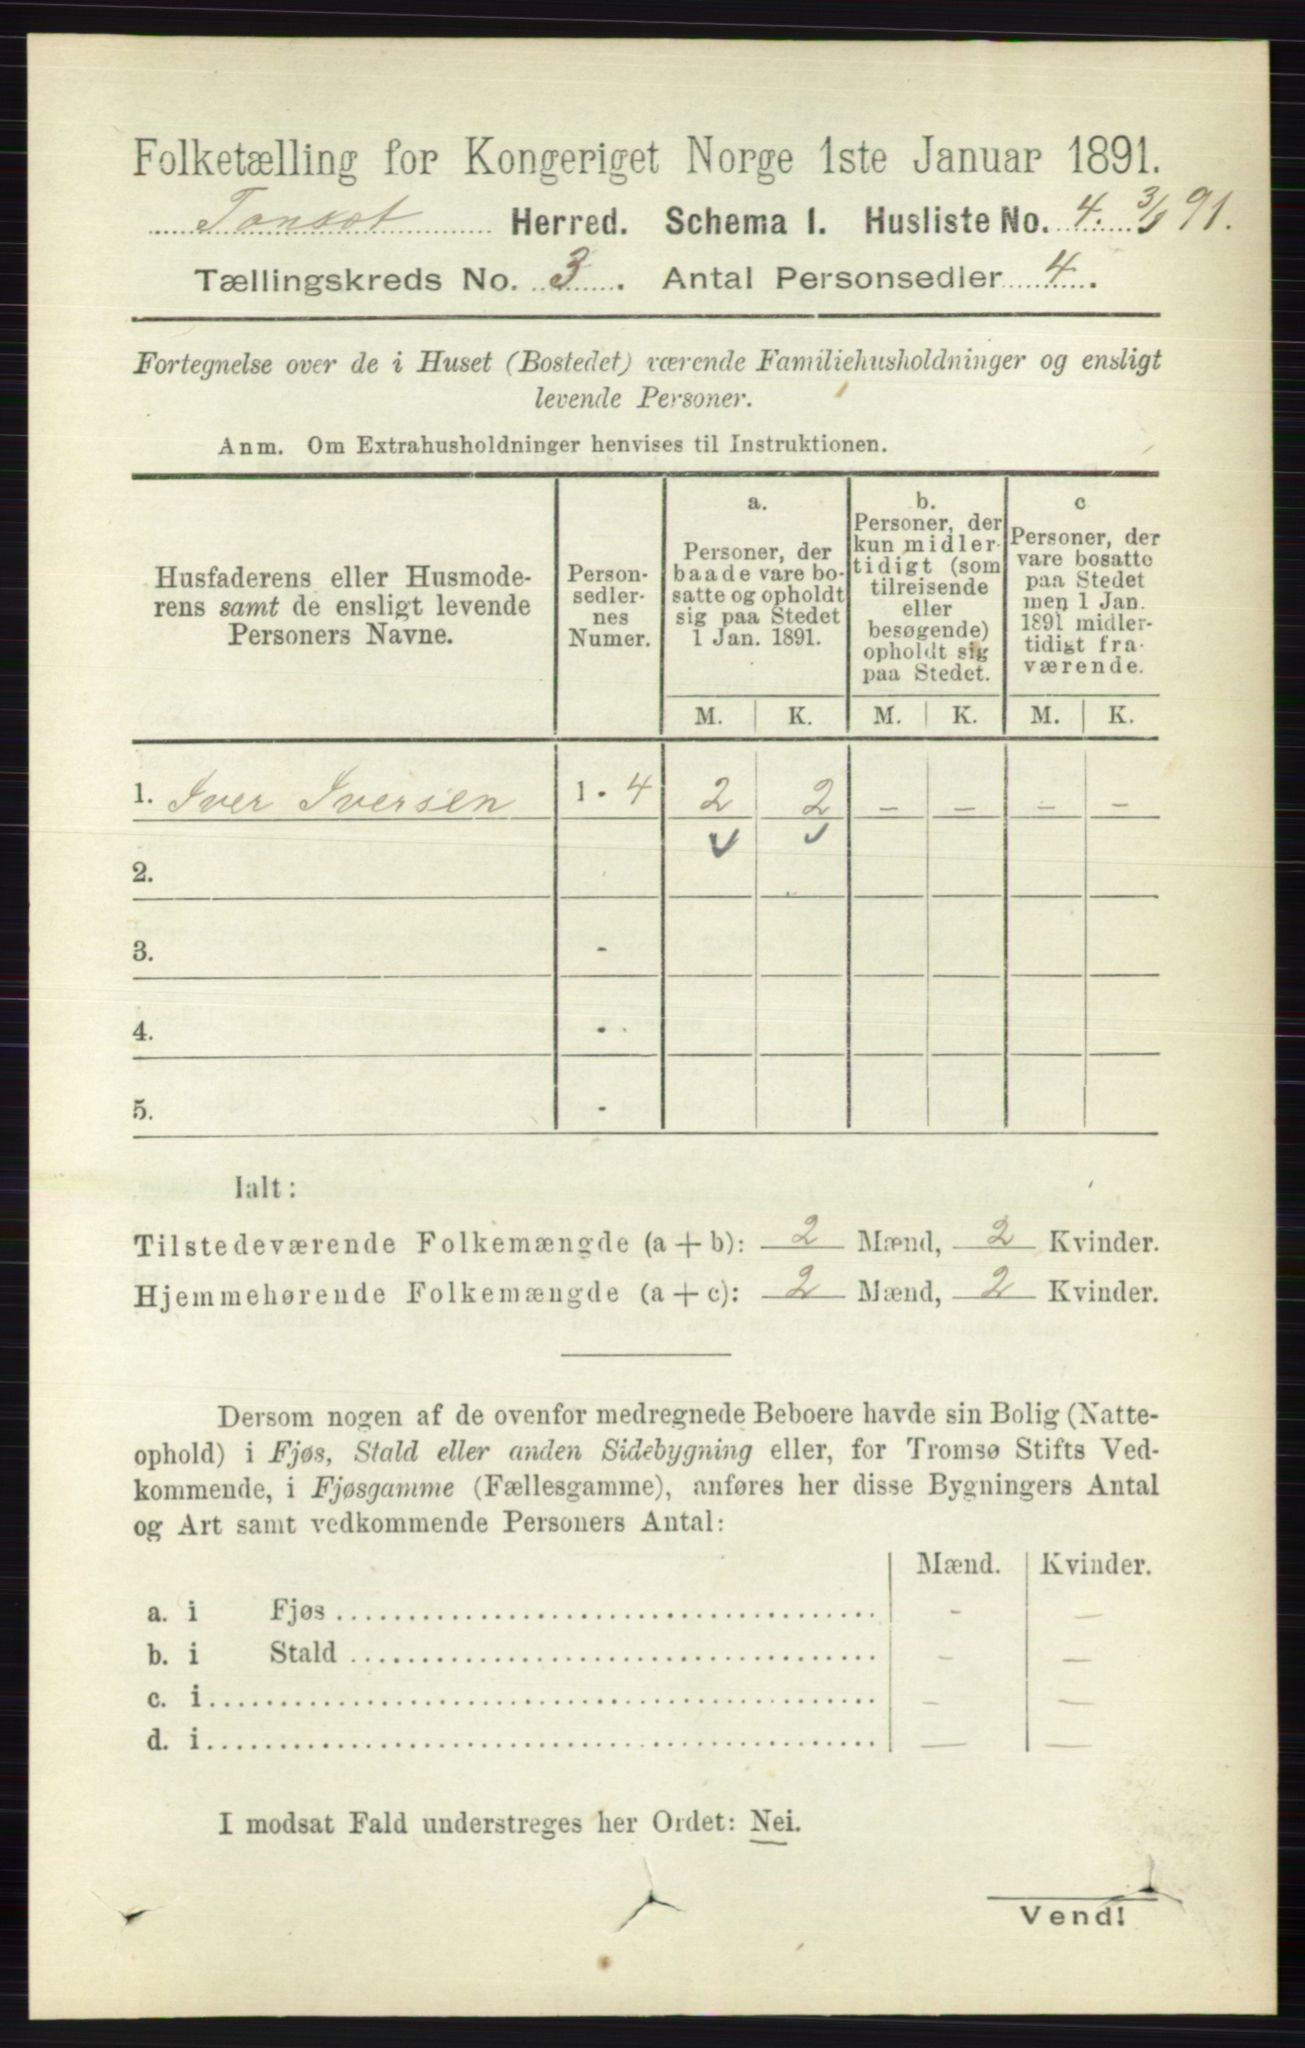 Folketælling for Kongeriget Norge 1ste Januar 1891.
Tonset Herred. Schema I. Husliste No. 4. 3/1 91.
Tællingskreds No. 3. Antal Personsedler 4.
Fortegnelse over de i Huset (Bostedet) værende Familiehusholdninger og ensligt
levende Personer.
Anm. Om Extrahusholdninger henvises til Instruktionen.
Husfaderens eller Husmode-
rens samt de ensligt levende
Personers Navne.
Person-
sedler-
nes
Numer.
a.
Personer, der
baade vare bo-
satte og opholdt
sig paa Stedet
1 Jan. 1891.
b.
Personer, der
kun midler-
tidigt (som
tilreisende
eller
besøgende)
opholdt sig
paa Stedet.
c
Personer, der
vare bosatte
paa Stedet
men 1 Jan.
1891 midler-
tidigt fra-
værende.
M. K. M. K. M. K.
1. Iver Iversen 1 - 4 2 2 – – – –
2.
3. -
4. -
5. -
Ialt:
Tilstedeværende Folkemængde (a + b): 2 Mænd, 2 Kvinder.
Hjemmehørende Folkemængde (a + c): 2 Mænd, 2 Kvinder.
Dersom nogen af de ovenfor medregnede Beboere havde sin Bolig (Natte-
ophold) i Fjøs, Stald eller anden Sidebygning eller, for Tromsø Stifts Ved-
kommende, i Fjøsgamme (Fællesgamme), anføres her disse Bygningers Antal
og Art samt vedkommende Personers Antal:
Mænd. Kvinder.
a. i Fjøs - –
b. i Stald – –
c. i – –
d. i — —
I modsat Fald understreges her Ordet: Nei.
Vend!